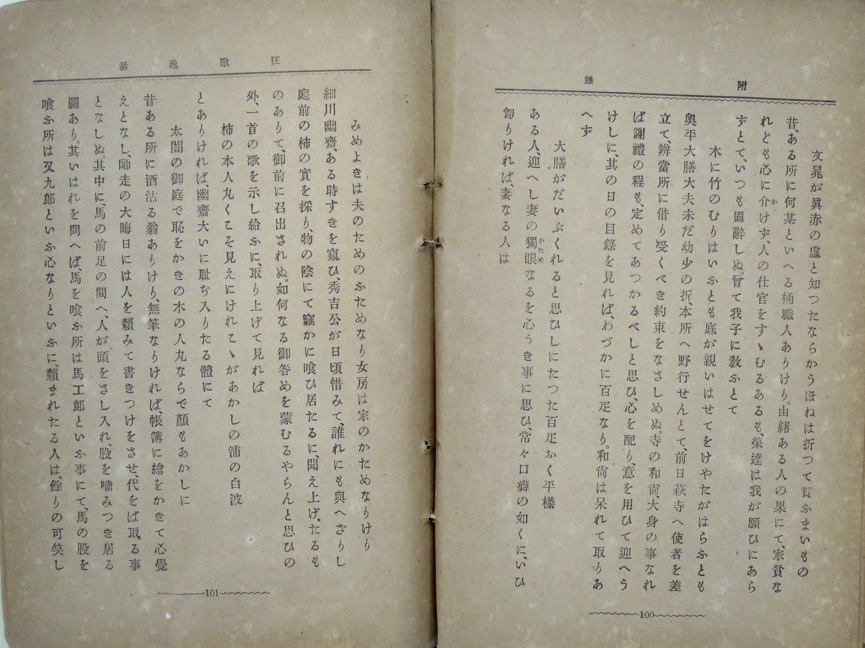 附錄
文晁が眞赤の虛と知つたならかうほねは折つて買ふまいもの
昔、ある所に何某といへる桶職人ありけり。由緖ある人の果にて、家貧な
れども心に介けず、人の仕官をすゝむるあるも、榮達は我が願ひにあら
ずとて、いつも固辭しぬ。甞て我子に敎ふとて
木に竹のむりはいふとも底が親いはせてをけやたがはらふとも
奧平大膳大夫未だ幼少の折、本所へ野行せんとて、前日萩寺へ使者を差
立て、辨當所に借り受くべき約束をなさしめぬ。寺の和尙、大身の事なれ
ば謝禮の程も、定めてあつかるべしと思ひ、心を配り、意を用ひて迎へう
けしに、其の日の目錄を見れば、わづかに百疋なり。和尙は呆れて取りあ
へず
大膳がだいぶくれると思ひしにたつた百疋おく平樣
ある人、迎へし妻の獨眼なるを心うき事に思ひ、常々口癖の如くに、いひ
罵りければ、妻なる人は
100
狂歌逸話
みめよきは夫のためのふためなり女房は家のかためなりけり
細川幽齋、ある時すきを窺ひ、秀吉公が日頃惜みて、誰れにも與へざりし
庭前の柿の實を採り、物の陰にて竊かに喰ひ居たるに、聞え上げたるも
のありて、御前に召出されぬ。如何なる御咎めを蒙むるやらんと思ひの
外、一首の歌を示し給ふに、取り上げて見れば
柿の本人丸くこそ見えにけれこゝがあかしの浦の白波
とありければ、幽齋大いに耻ぢ入りたる體にて
太閤の御庭で恥をかきの木の人丸ならで顏もあかしに
昔ある所に酒沽る翁ありけり、無筆なりければ、帳簿に繪をかきて心覺
えとなし、師走の大晦日には人を賴みて書きつけをさせ、代をば取る事
となしぬ。其中に、馬の前足の間へ、人が頭をさし入れ、股を嚙みつき居る
圖あり。其いはれを問へば、馬を喰ふ所は馬工郞といふ事にて、馬の股を
喰ふ所は又九郞といふ心なりといふに、賴まれたる人は、餘りの可笑し
101